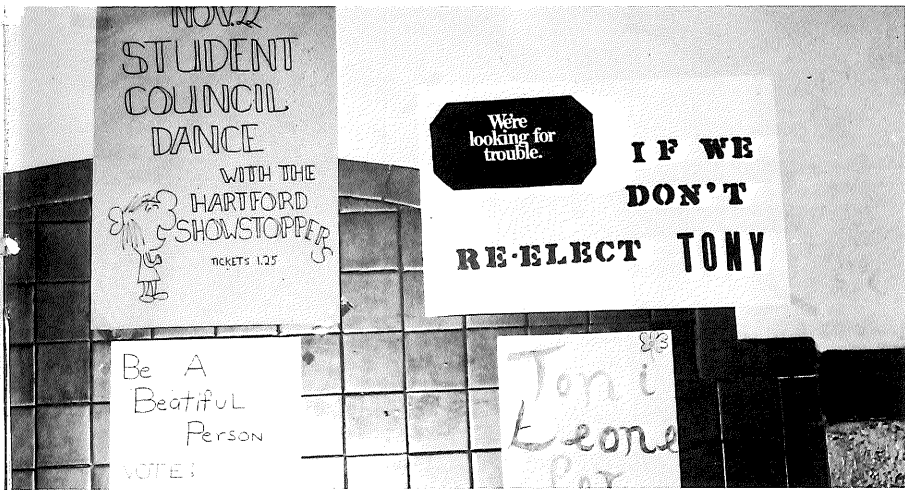 NOV. 22
STUDENT
COUNCIL
DANCE
WITH THE
HARTFORD
SHOWSTOPPERS
TICKETS 1.25
We're
looking for
trouble.
IF WE
DON'T
RE-ELECT TONY
Be A
Beatiful
Person
VOTE!
Toni
Leone
for